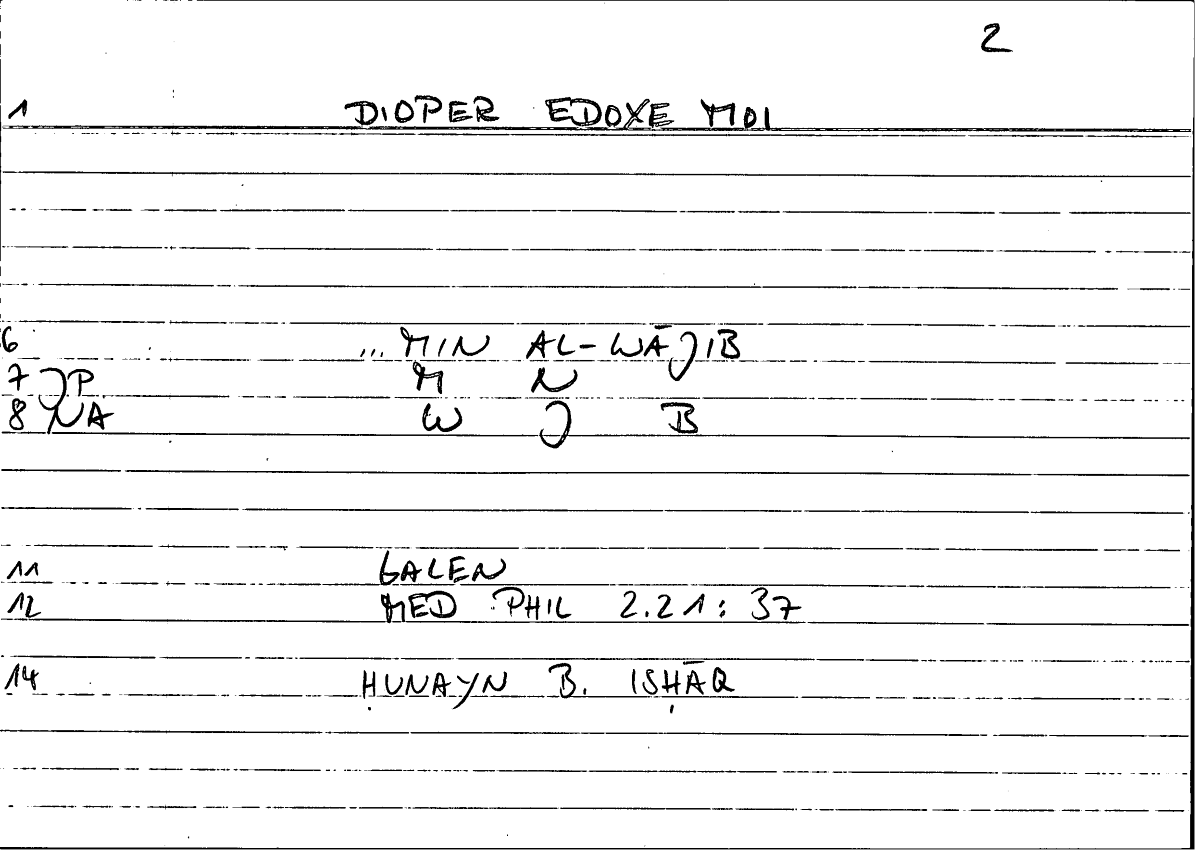 2
1 DIOPER EDOXE MOI
6 ... MIN AL-WĀJIB
7 JP M N
8 NA W J B
11 GALEN
12 MED PHIL 2.21: 37
14 ḤUNAYN B. ISḤĀQ